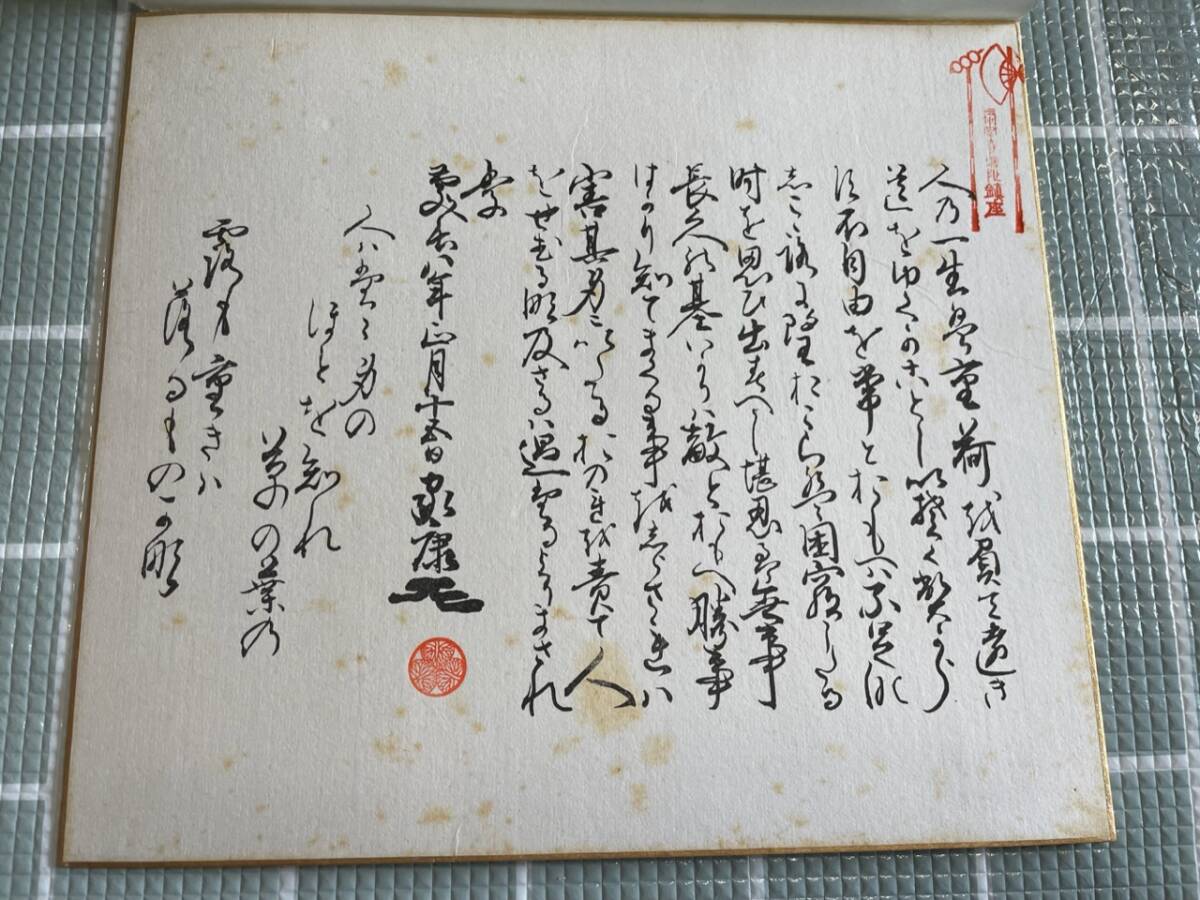 鎮座
人乃一生は重荷越負て遠き
道をゆくかことしいそくへから
須不自由を常とおもへハ不足那
志こゝろに望おこらは困窮したる
時を思ひ出すへし堪忍は無事
長久の基いかりハ敵とおもへ勝事
はかり知てまくる事越志らされハ
害其身にいたるおのれ越責て人
をせむる那及さるハ過たるよりまされ
李
慶長八年正月十五日 家康
人ハたゝ身の
ほとを知れ
草の葉の
露も重きハ
落るものか那